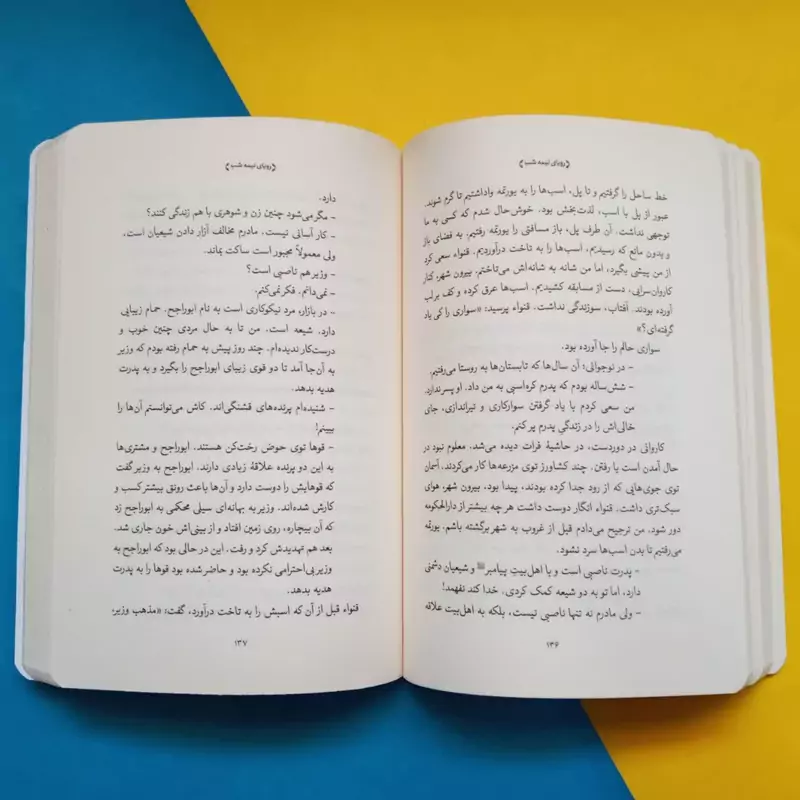 رویای نیمه شب
خط ساحل را گرفتیم و تا پل، اسب‌ها را به یورتمه واداشتیم تا گرم شوند.
عبور از پل با اسب، لذت‌بخش بود. خوش‌حال شدم که کسی به ما
توجهی نداشت. آن طرف پل، باز مسافتی را یورتمه رفتیم. به فضای باز
و بدون مانع که رسیدیم، اسب‌ها را به تاخت درآوردیم. قنواء سعی کرد
از من پیشی بگیرد، اما من شانه به شانه‌اش می‌تاختم. بیرون شهر، کنار
کاروان‌سرایی، دست از مسابقه کشیدیم. اسب‌ها عرق کرده و کف بر لب
آورده بودند. آفتاب، سوزندگی نداشت. قنواء پرسید: «سواری را کی یاد
گرفته‌ای؟»
سواری حالم را جا آورده بود.
- در نوجوانی؛ آن سال‌ها که تابستان‌ها به روستا می‌رفتیم.
- شش‌ساله بودم که پدرم کره‌اسبی به من داد. او پسر ندارد.
من سعی کردم با یاد گرفتن سوارکاری و تیراندازی، جای
خالی‌اش را در زندگیِ پدرم پر کنم.
کاروانی در دوردست، در حاشیهٔ فرات دیده می‌شد. معلوم نبود در
حال آمدن است یا رفتن. چند کشاورز توی مزرعه‌ها کار می‌کردند. آسمان
توی جوی‌هایی که از رود جدا کرده بودند، پیدا بود. بیرون شهر، هوای
سبک‌تری داشت. قنواء انگار دوست داشت هر چه بیشتر از دارالحکومه
دور شود. من ترجیح می‌دادم قبل از غروب به شهر برگشته باشم. یورتمه
می‌رفتیم تا بدن اسب‌ها سرد نشود.
- پدرت ناصبی است و با اهل‌بیتِ پیامبر ﷺ و شیعیان دشمنی
دارد، اما تو به دو شیعه کمک کردی. خدا کند نفهمد!
- ولی مادرم نه تنها ناصبی نیست، بلکه به اهل‌بیت علاقه
۱۳۶
رویای نیمه شب
دارد.
- مگر می‌شود چنین زن و شوهری با هم زندگی کنند؟
- کار آسانی نیست. مادرم مخالف آزار دادن شیعیان است،
ولی معمولاً مجبور است ساکت بماند.
- وزیر هم ناصبی است؟
- نمی‌دانم. فکر نمی‌کنم.
- در بازار، مرد نیکوکاری است به نام ابوراجح. حمام زیبایی
دارد. شیعه است. من تا به حال مردی چنین خوب و
درست‌کار ندیده‌ام. چند روز پیش به حمام رفته بودم که وزیر
به آن‌جا آمد تا دو قوی زیبای ابوراجح را بگیرد و به پدرت
هدیه بدهد.
- شنیده‌ام پرنده‌های قشنگی‌اند. کاش می‌توانستم آن‌ها را
ببینم!
- قوها توی حوض رخت‌کن هستند. ابوراجح و مشتری‌ها
به این دو پرنده علاقهٔ زیادی دارند. ابوراجح به وزیر گفت
که قوهایش را دوست دارد و آن‌ها باعث رونق بیشتر کسب و
کارش شده‌اند. وزیر به بهانه‌ای سیلی محکمی به ابوراجح زد
که آن بیچاره، روی زمین افتاد و از بینی‌اش خون جاری شد.
بعد هم تهدیدش کرد و رفت. این در حالی بود که ابوراجح به
وزیر بی‌احترامی نکرده بود و حاضر شده بود قوها را به پدرت
هدیه بدهد.
قنواء قبل از آن که اسبش را به تاخت درآورد، گفت: «مذهب وزیر،
۱۳۷